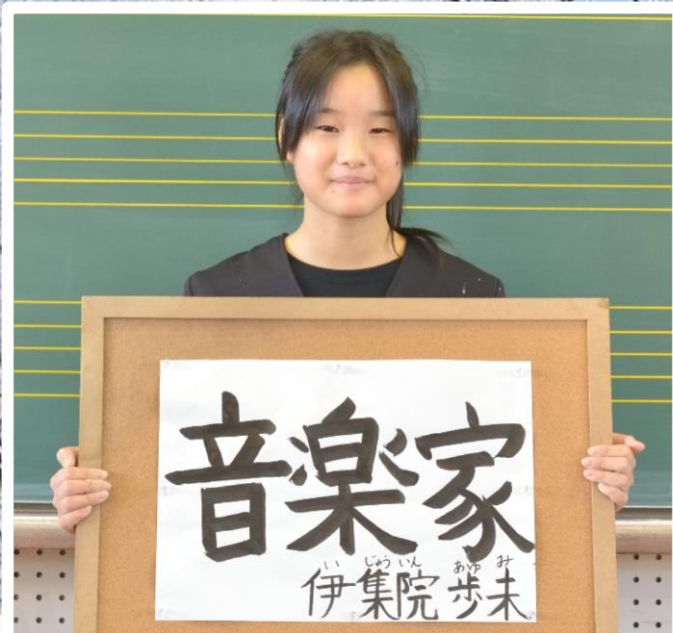 音楽家
いじゅういん あゆみ
伊集院 歩未